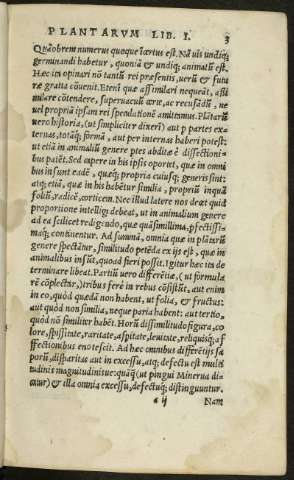 PLANTARVM LIB. I. 3
Quãobrem numerus quoque ĩcertus est. Nã uis undiq;
germinandi habetur, quoniã & undiq; animatũ est.
Hęc ita opinari nõ tantũ rei præsentis, uerũ & futu
ræ gratia cõuenit. Etenĩ quæ assimilari nequeãt, assi
milare cõtendere, superuacuũ æræ, ac recusãdũ, ne
uel propriã ipsam rei spendationẽ amittamus. Plãtarũ
uero historia, (ut simpliciter dixerĩ) aut p partes ex
ternas, totãq; formã, aut per internas haberi potest:
ut etiã in animaliũ genere ptes abditæ è dissectioni
bus patẽt. Sed capere in his ipsis oportet, quæ in omni
bus insunt eædẽ, quæq; propria cuiusq; generis sint:
atq; etiã, quæ in his habẽtur similia, propriũ inquã
foliũ, radicẽ, corticem. Nec illud latere nos debet quid
proportione intellig; debeat, ut in animalium genere
ad ea scilicet redigẽdo, quæ quãsimillima, pfectissi
maq; continentur. Ad summã, omnia quæ in plãtarũ
genere spectãtur, similitudo petẽda ex ijs est, quæ in
animalibus insũt, quoad fieri possit. Igitur hæc ita de
terminare libeat. Partiũ uero differẽtiæ, (ut formula
rẽ cõplectar,) tribus ferè in rebus cõsistũt, aut enim
in eo, quòd quædã non habent, ut folia, & fructus:
aut quòd non similia, neque paria habent: aut tertio,
quòd nõ similiter habẽt. Horũ dissimilitudo figura, co
lore, spissitate, raritate, aspitate, leuitate, reliquisq; a
ffectionibus enotescit. Ad hæc omnibus differẽtijs sa
porũ, disparitas aut in excessu, atq; defectu est multi
tudinis magnitudinisue: quãq̃ (ut pingui Minerua di
catur) & illa omnia excessu, defectuq; distinguuntur.
a ij Nam